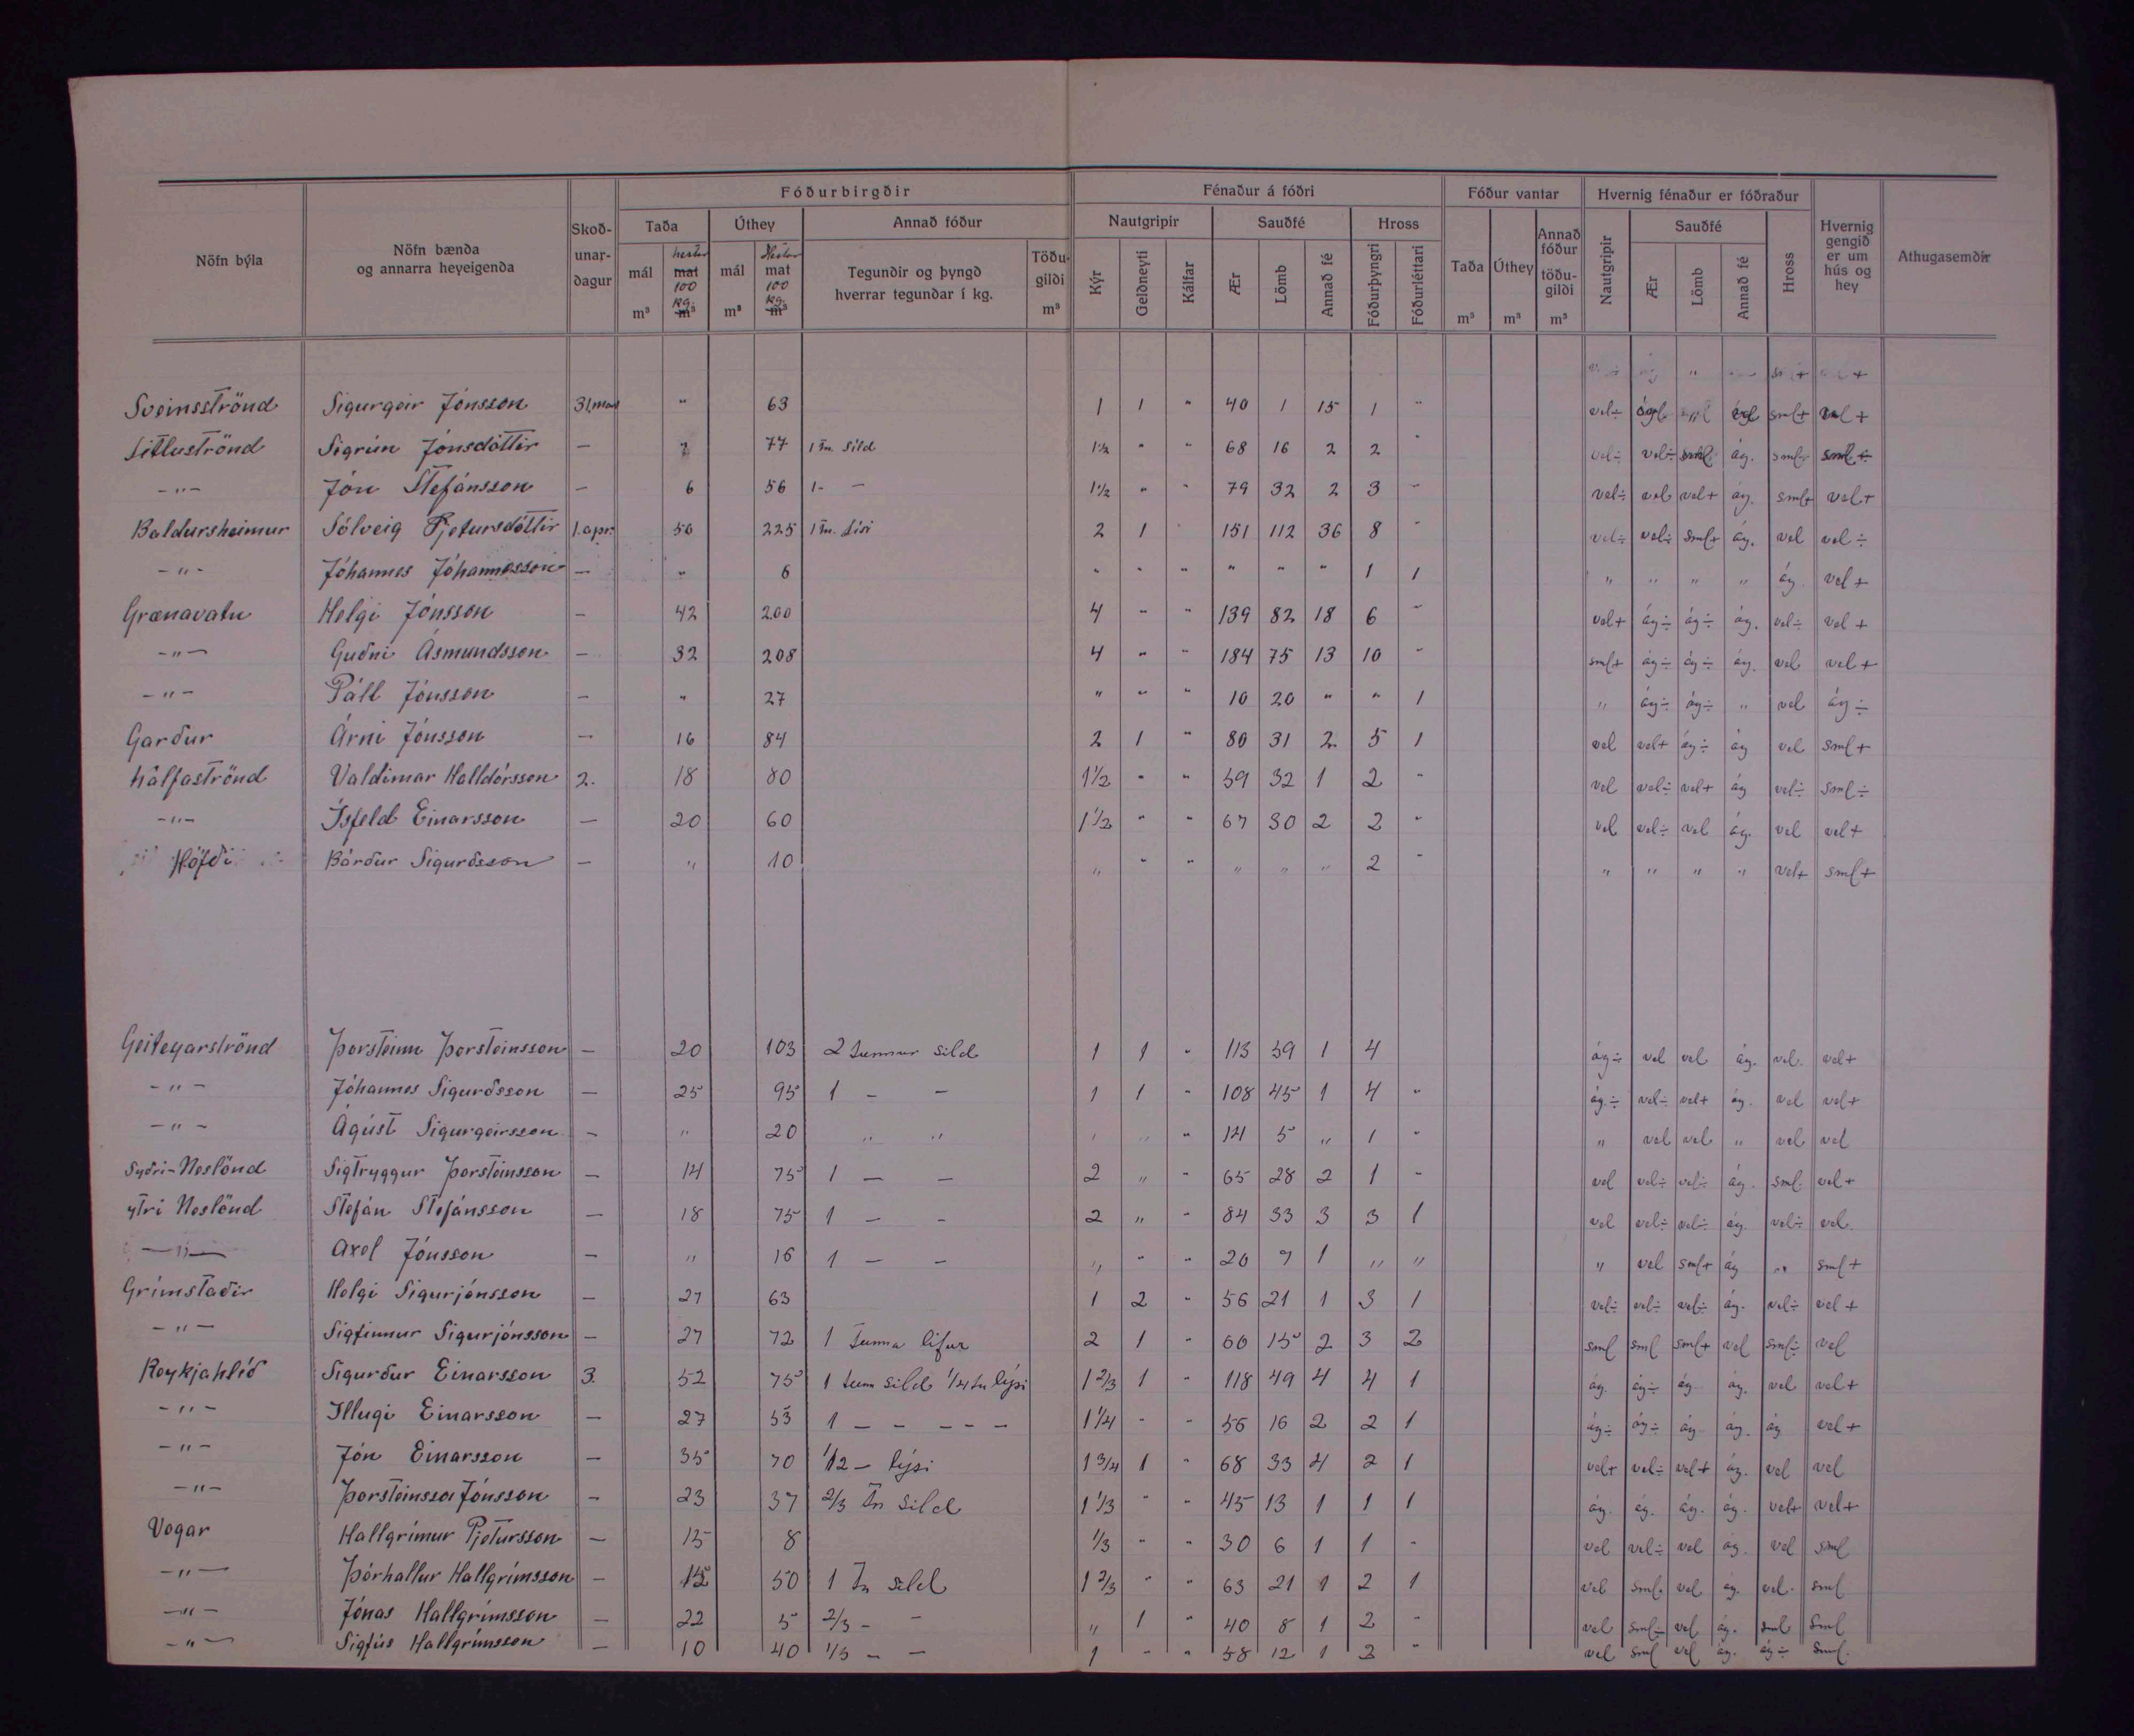 Fóðurbirgðir Fénaður á fóðri Fóður vantar Hvernig fénaður er fóðraður
Nöfn býla Nöfn bænda og annarra heyeigenda Skoð-unar-dagur Taða Úthey Annað fóður Nautgripir Sauðfé Hross Taða Úthey Annað fóður töðu-gildi Nautgripir Sauðfé Hross Hvernig gengið er um hús og hey Athugasemdir
mál m³ hestar mat 100 kg. m³ mál m³ Hestar mat 100 kg. m³ Tegundir og þyngd hverrar tegundar í kg. Töðu-gildi m³ Kýr Geldneyti Kálfar Ær Lömb Annað fé Fóðurþyngri Fóðurléttari m³ m³ m³ Ær Lömb Annað fé
Sveinsströnd Sigurgeir Jónsson 31. mars " 63 1 1 " 40 1 15 1 " vel÷ sml+ vel +
Litluströnd Sigrún Jónsdóttir — 77 1 tn. síld 1½ " " 68 16 2 2 " vel÷ vel÷ sml÷ ág. sml÷ sml÷
—"— Jón Stefánsson — 6 56 1 - — 1½ " " 79 32 2 3 " vel÷ vel vel+ ág. sml+ vel+
Baldursheimur Sólveig Pjetursdóttir 1. apr. 50 225 1 tn. lísi 2 1 " 151 112 36 8 " vel÷ vel÷ sml+ ág. vel vel÷
—"— Jóhannes Jóhannesson — " 6 " " " " " " 1 1 " " " " ág. vel+
Grænavatn Helgi Jónsson — 42 200 4 " " 139 82 18 6 " vel+ ág÷ ág÷ ág. vel÷ vel +
—"— Guðni Ásmundsson — 32 208 4 " " 184 75 13 10 " sml+ ág÷ ág÷ ág. vel vel+
—"— Páll Jónsson — " 27 " " " 10 20 " " 1 " ág÷ ág÷ " vel ág÷
Garður Árni Jónsson — 16 84 2 1 " 80 31 2 5 1 vel vel+ ág÷ ág vel sml+
Kálfaströnd Valdimar Halldórsson 2. 18 80 1½ " " 59 32 1 2 " vel vel÷ vel+ ág vel÷ sml÷
—"— Ísfeld Einarsson — 20 60 1½ " " 67 30 2 2 " vel vel÷ vel ág. vel vel+
Höfði Bárður Sigurðsson — " 10 " " " " " " 2 " " " " " vel+ sml+
Geiteyarströnd Þorsteinn Þorsteinsson — 20 103 2 tunnur síld 1 1 " 113 39 1 4 ág÷ vel vel ág. vel. vel+
—"— Jóhannes Sigurðsson — 25 95 1 — — 1 1 " 108 45 1 4 " ág.÷ vel÷ vel+ ág. vel vel+
—"— Ágúst Sigurgeirsson — " 20 " " " " " 14 5 " 1 " " vel vel " vel vel
Syðri-Neslönd Sigtryggur Þorsteinsson — 14 75 1 — — 2 " " 65 28 2 1 " vel vel÷ vel÷ ág. sml. vel+
ytri Neslönd Stefán Stefánsson — 18 75 1 — - 2 " " 84 33 3 3 1 vel vel÷ vel÷ ág. vel÷ vel.
—"— Axel Jónsson — " 16 1 — - " " " 20 7 1 " " " vel sml+ ág " sml+
Grímstaðir Helgi Sigurjónsson — 27 63 1 2 " 56 21 1 3 1 vel÷ vel÷ vel÷ ág. vel÷ vel +
—"— Sigfinnur Sigurjónsson — 27 72 1 tunna lifur 2 1 " 60 15 2 3 2 sml sml sml+ vel sml÷ vel
Reykjahlíð Sigurður Einarsson 3. 52 75 1 tunn síld 1/4 tn lýsi 1 2/3 1 " 118 49 4 4 1 ág. ág÷ ág. ág. vel vel+
—"— Illugi Einarsson — 27 53 1 — — — — — 1 1/4 " " 56 16 2 2 1 ág÷ ág÷ ág. ág. ág vel+
—"— Jón Einarsson — 35 70 1/2 — lýsi 1 3/4 1 " 68 33 4 2 1 vel+ vel÷ vel+ ág. vel vel
—"— Þorsteinsson Jónsson — 23 37 2/3 tn síld 1 1/3 " " 45 13 1 1 1 ág. ág. ág. ág. vel+ vel+
Vogar Hallgrímur Pjetursson — 15 8 1/3 " " 30 6 1 1 " vel vel÷ vel ág. vel sml
—"— Þórhallur Hallgrímsson — 50 1 tn síld 1 2/3 " " 63 21 1 2 1 vel sml. vel ág. vel. sml
—"— Jónas Hallgrímsson — 22 5 2/3 — - " 1 " 40 8 1 2 " vel sml÷ vel ág. sml sml
—"— Sigfús Hallgrímsson — 10 40 1/3 — — 1 " " 58 12 1 3 " vel sml vel ág. ág÷ sml.